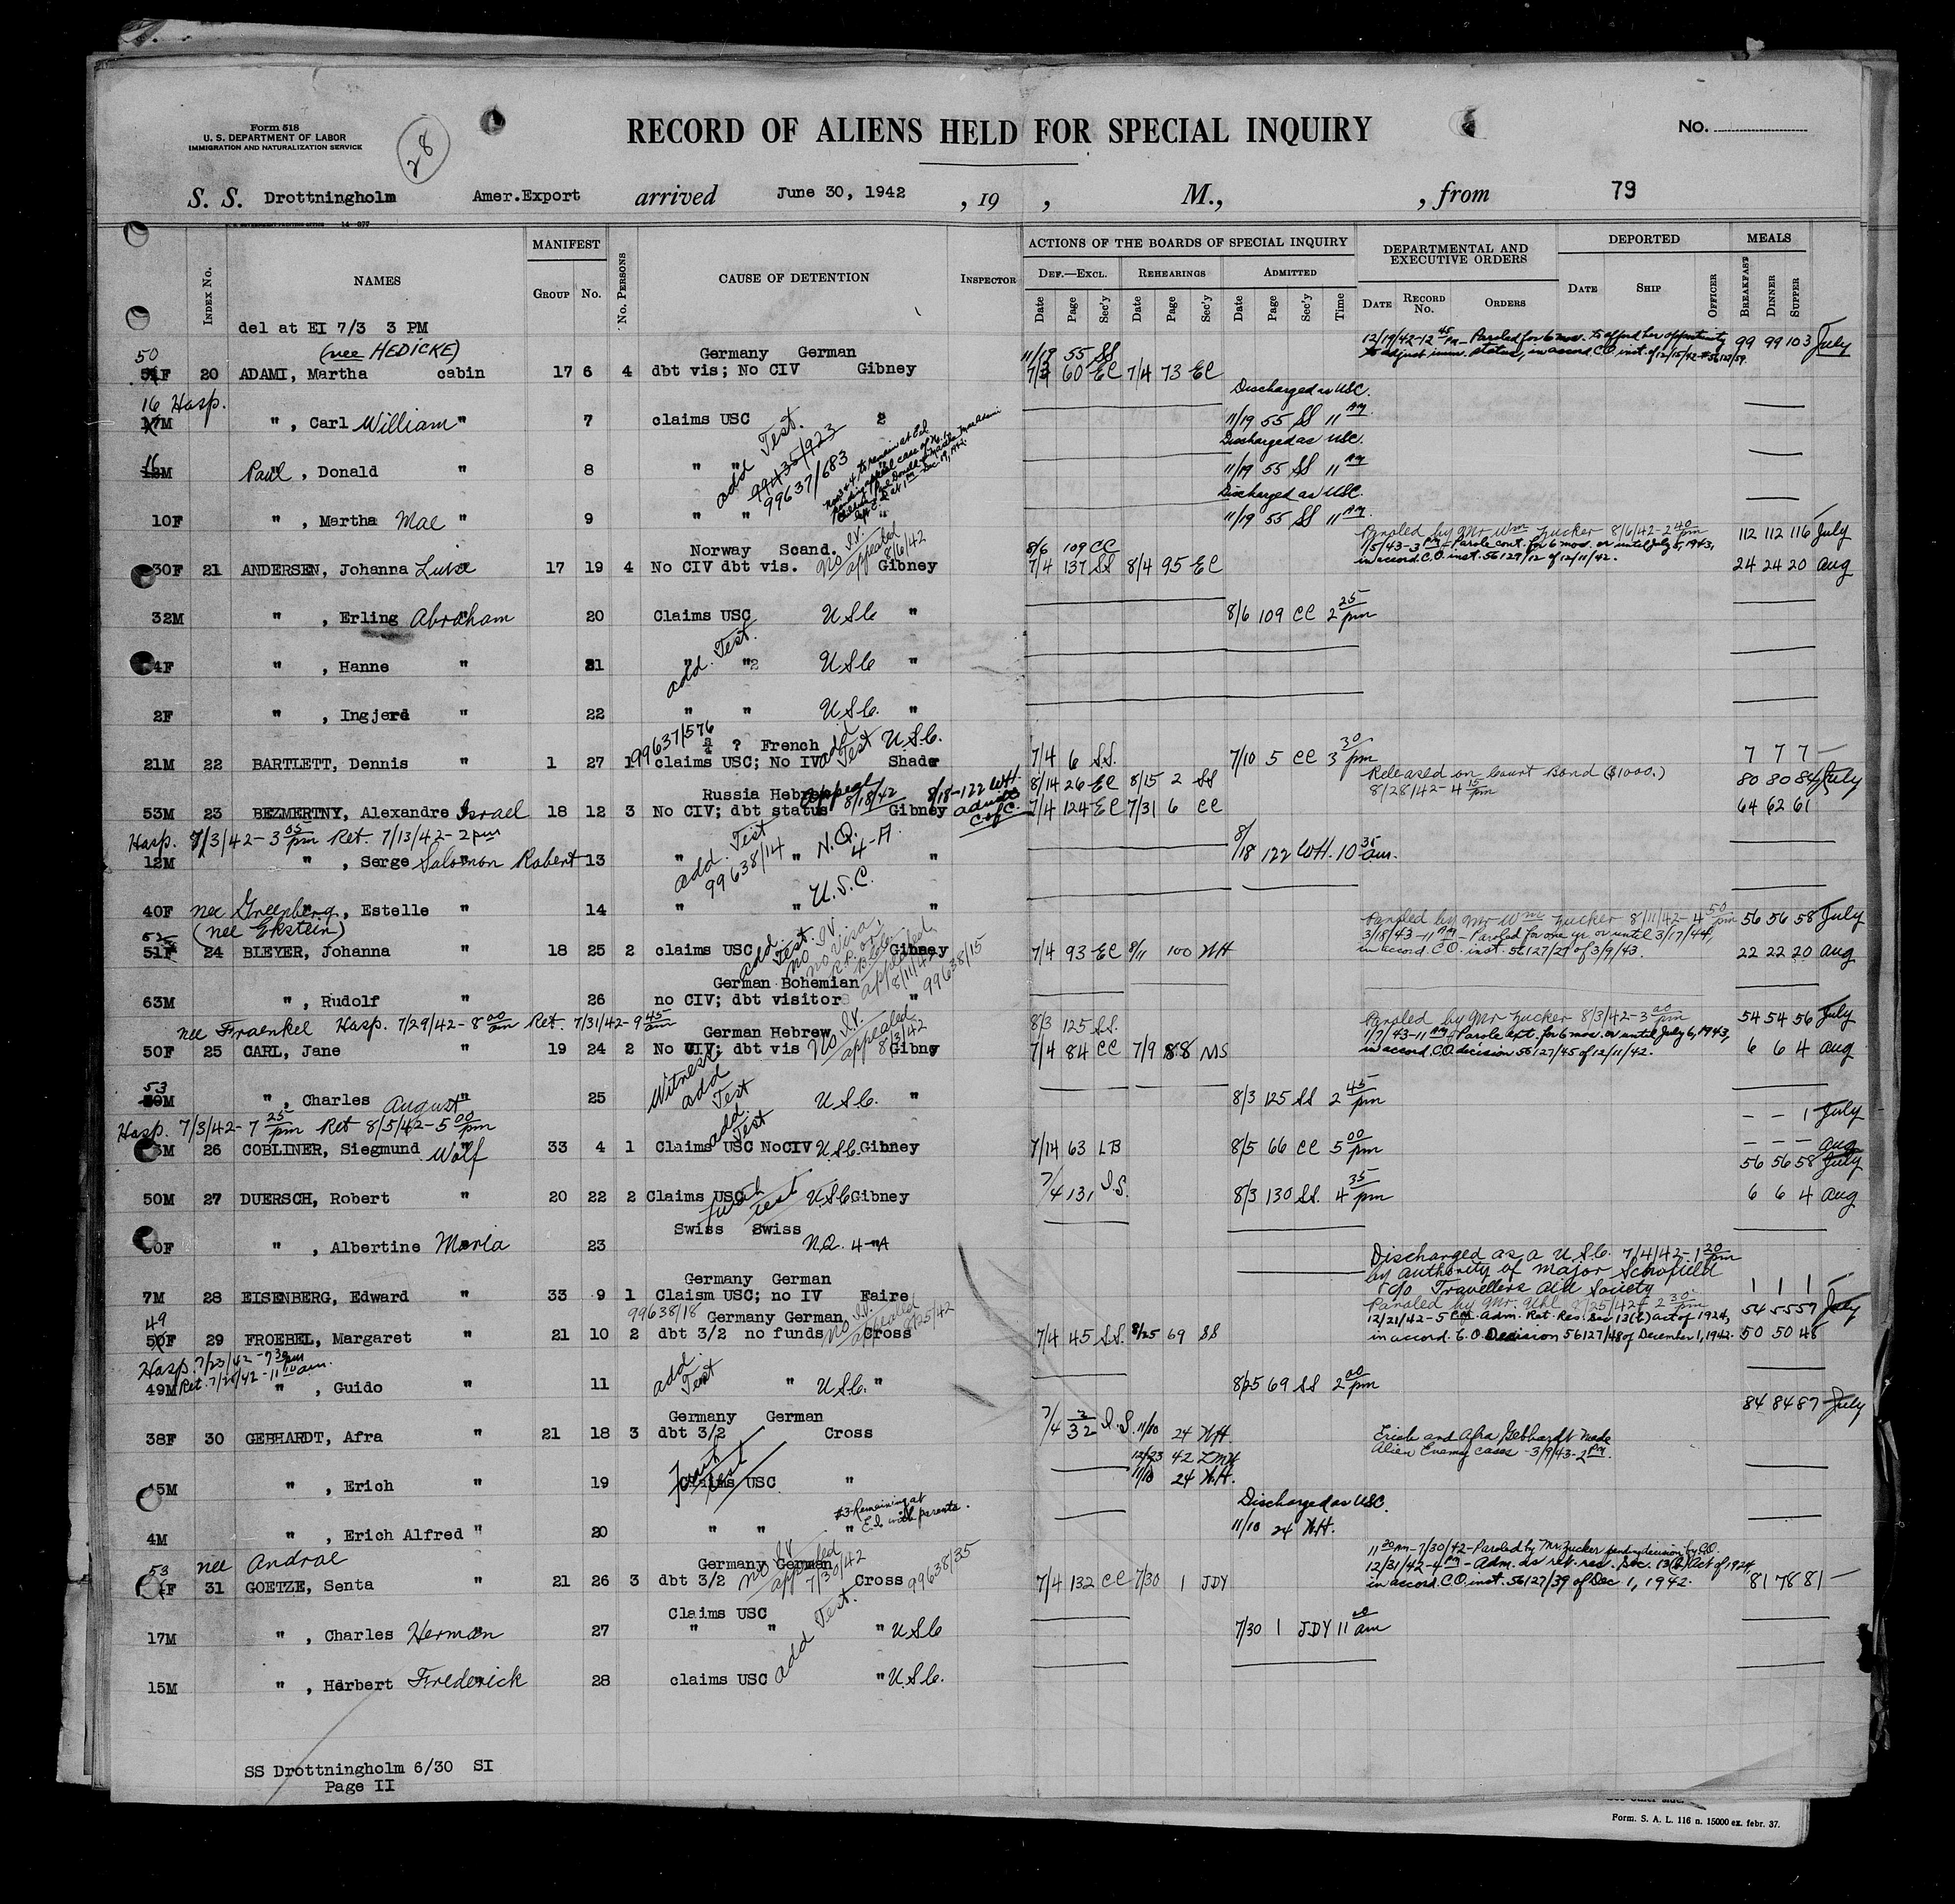 Form 518
U. S. DEPARTMENT OF LABOR
IMMIGRATION AND NATURALIZATION SERVICE
28
RECORD OF ALIENS HELD FOR SPECIAL INQUIRY
No.
S. S. Drottningholm Amer.Export arrived June 30, 1942 , 19 , M., , from 79
14-877
Index No. NAMES MANIFEST Group No. No. Persons CAUSE OF DETENTION Inspector
ACTIONS OF THE BOARDS OF SPECIAL INQUIRY
Def.—Excl. Date Page Sec'y Rehearings Date Page Sec'y Admitted Date Page Sec'y Time
DEPARTMENTAL AND EXECUTIVE ORDERS Date Record No. Orders
DEPORTED Date Ship Officer
MEALS Breakfast Dinner Supper
del at EI 7/3 3 PM
(nee HEDICKE) Germany German 11/19 55 SS 12/19/42-12 45 PM - Paroled for 6 mos. to afford her opportunity 99 99 103 July
to adjust imm. status, in accord. C.O. inst. of 12/15/42
50 F 20 ADAMI, Martha cabin 17 6 4 dbt vis; No CIV Gibney 7/3 60 EC 7/4 73 EC
Discharged as USC.
16 Hosp.
M " , Carl William " 7 claims USC 11/19 55 SS 11 AM
Discharged as USC.
16 M Paul , Donald " 8 " " add Test. 99435/923 99637/683 11/19 55 SS 11 AM
Discharged as USC.
10F " , Martha Mae " 9 " " " 11/19 55 SS 11 AM
Norway Scand. No I.V. appealed 8/6/42 8/6 109 CC Paroled by Mr Wm Zucker 8/6/42-2 40 pm 112 112 116 July
1/5/43-3 PM - Parole cont. for 6 mos. or until July 5, 1943,
30F 21 ANDERSEN, Johanna 17 19 4 No CIV dbt vis. Gibney 7/4 137 SS 8/4 95 EC in accord. C.O. inst. 56127/12 of 12/11/42. 24 24 20 Aug
32M " , Erling Abraham 20 Claims USC USC " 8/6 109 CC 2 25 pm
4F " , Hanne " 21 " " add. Test. USC "
2F " , Ingjerd " 22 " " USC. "
99637/576 ? French add Test USC.
21M 22 BARTLETT, Dennis " 1 27 1 claims USC; No IV Shader 7/4 6 SS. 7/10 5 CC 3 30 pm 7 7 7
Russia Hebrew Appeal 8/18/42 8/18-122 WH. 8/14 26 EC 8/15 2 SS Released on Court Bond ($1000.) 80 80 84 July
8/28/42-4 15 pm
53M 23 BEZMERTNY, Alexandre Israel 18 12 3 No CIV; dbt status Gibney 7/4 124 EC 7/31 6 CC 64 62 61
Hosp. 7/3/42-3 05 pm Ret. 7/13/42-2 pm
12M " , Serge Salomon Robert 13 " add. Test 99638/14 " N.Q. 4-A " 8/18 122 WH. 10 35 am.
40F nee Greenberg, Estelle " 14 " " U.S.C. "
(nee Ekstein) Paroled by Mr Wm Zucker 8/11/42-4 50 pm 56 56 58 July
3/18/43-11 AM - Paroled for one yr. or until 3/17/44,
52 51F 24 BLEYER, Johanna " 18 25 2 claims USC add. Test. Gibney 7/4 93 EC 8/11 100 WH in accord. C.O. inst. 56127/27 of 3/9/43. 22 22 20 Aug
German Bohemian appealed 8/11/42 99638/15
63M " , Rudolf " 26 no CIV; dbt visitor "
nee Fraenkel Hosp. 7/29/42-8 00 am Ret. 7/31/42-9 45 am
German Hebrew No I.V. appealed 8/3/42 8/3 125 SS. Paroled by Mr Zucker 8/3/42-3 00 pm 54 54 56 July
1/7/43-11 AM - Parole ext. for 6 mos. or until July 6, 1943,
50F 25 CARL, Jane " 19 24 2 No CIV; dbt vis Gibney 7/4 84 CC 7/9 88 MS in accord. C.O. decision 56127/45 of 12/11/42. 6 6 4 Aug
53 M " , Charles August " 25 Witness add Test USC. " 8/3 125 SS 2 45 pm
Hosp. 7/3/42-7 25 pm Ret 8/5/42-5 00 pm - - 1 July
M 26 COBLINER, Siegmund Wolf 33 4 1 Claims USC NoCIV add. Test USC. Gibney 7/14 63 LB 8/5 66 CC 5 00 pm - - - Aug
56 56 58 July
50M 27 DUERSCH, Robert " 20 22 2 Claims USC test USC Gibney 7/4 131 I.S. 8/3 130 SS. 4 35 pm 6 6 4 Aug
Swiss Swiss
F " , Albertine Maria 23 N.Q. 4-A
Discharged as a USC. 7/4/42-1 20 pm
by authority of Major Schofield
c/o Travellers Aid Society 1 1 1
Germany German
7M 28 EISENBERG, Edward " 33 9 1 Claism USC; no IV Faire
99638/18 Germany German No I.V. appealed 8/25/42 Paroled by Mr. Uhl 8/25/42-2 30 pm 54 55 57 July
12/21/42-5 PM Adm. Ret. Res. Sec 13(b) Act of 1924,
49 50F 29 FROEBEL, Margaret " 21 10 2 dbt 3/2 no funds Cross 7/4 45 SS. 8/25 69 SS in accord. C.O. Decision 56127/48 of December 1, 1942. 50 50 48
Hosp. 7/23/42-7 30 pm
Ret. 7/25/42-11 10 am.
49M " , Guido " 11 add. Test " USC. " 8/25 69 SS 2 00 pm
84 84 87 July
Germany German
38F 30 GEBHARDT, Afra " 21 18 3 dbt 3/2 Cross 7/4 32 I.S. 11/10 24 WH Erich and Afra Gebhardt made
Alien Enemy cases - 3/9/43-2 PM.
12/23 42 LMH
45M " , Erich " 19 Claims USC " 11/10 24 WH.
#3 Remaining at E.I. with parents. Discharged as USC.
4M " , Erich Alfred " 20 " " " 11/10 24 WH.
53 nee Androe Germany German No I.V. appealed 7/30/42 99638/35
11 00 AM-7/30/42-Paroled by Mr. Zucker pending decision by C.O.
12/31/42-4 PM - Adm. as ret. res. Sec. 13(b) Act of 1924,
F 31 GOETZE, Senta " 21 26 3 dbt 3/2 Cross 7/4 132 CC 7/30 1 JDY in accord. C.O. inst. 56127/39 of Dec 1, 1942. 81 78 81
Claims USC
17M " , Charles Herman 27 " " add Test. " USC 7/30 1 JDY 11 00 am
15M " , Herbert Frederick 28 claims USC " USC.
SS Drottningholm 6/30 SI
Page II
Form. S. A. L. 116 n. 15000 ex. febr. 37.